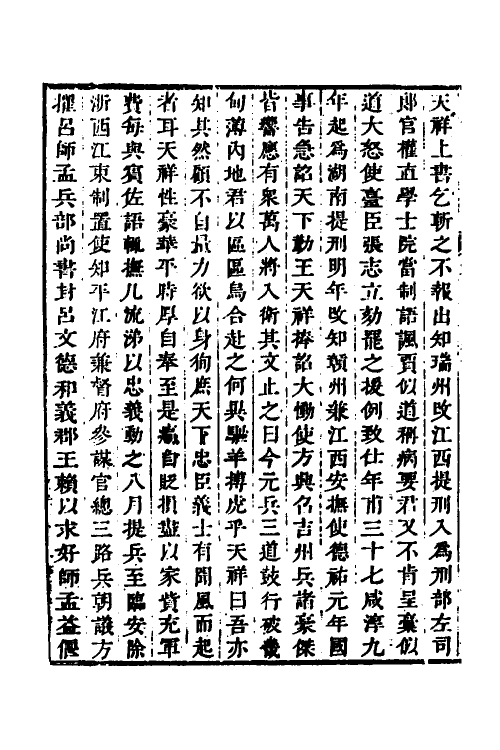 天祥上書乞斬之不報出知瑞州改江西提刑入爲刑部左司
郎官權直學士院當制語諷賈似道稱病要君又不肯呈稾似
道大怒使臺臣張志立劾罷之援例致仕年甫三十七咸淳九
年起爲湖南提刑明年改知贛州兼江西安撫使德祐元年國
事告急詔天下勤王天祥捧詔大慟使方興召吉州兵諸豪傑
皆響應有衆萬人將入衛其友止之曰今元兵三道鼓行破畿
甸薄內地君以區區烏合赴之何異驅羊搏虎乎天祥曰吾亦
知其然顧不自量力欲以身狥庶天下忠臣義士有聞風而起
者耳天祥性豪華平時厚自奉至是痛自貶損盡以家貲充軍
費每與賓佐語輒撫几流涕以忠義動之八月提兵至臨安除
浙西江東制置使知平江府兼督府參謀官總三路兵朝議方
擢呂師孟兵部尚書封呂文德和義郡王賴以求好師孟益偃